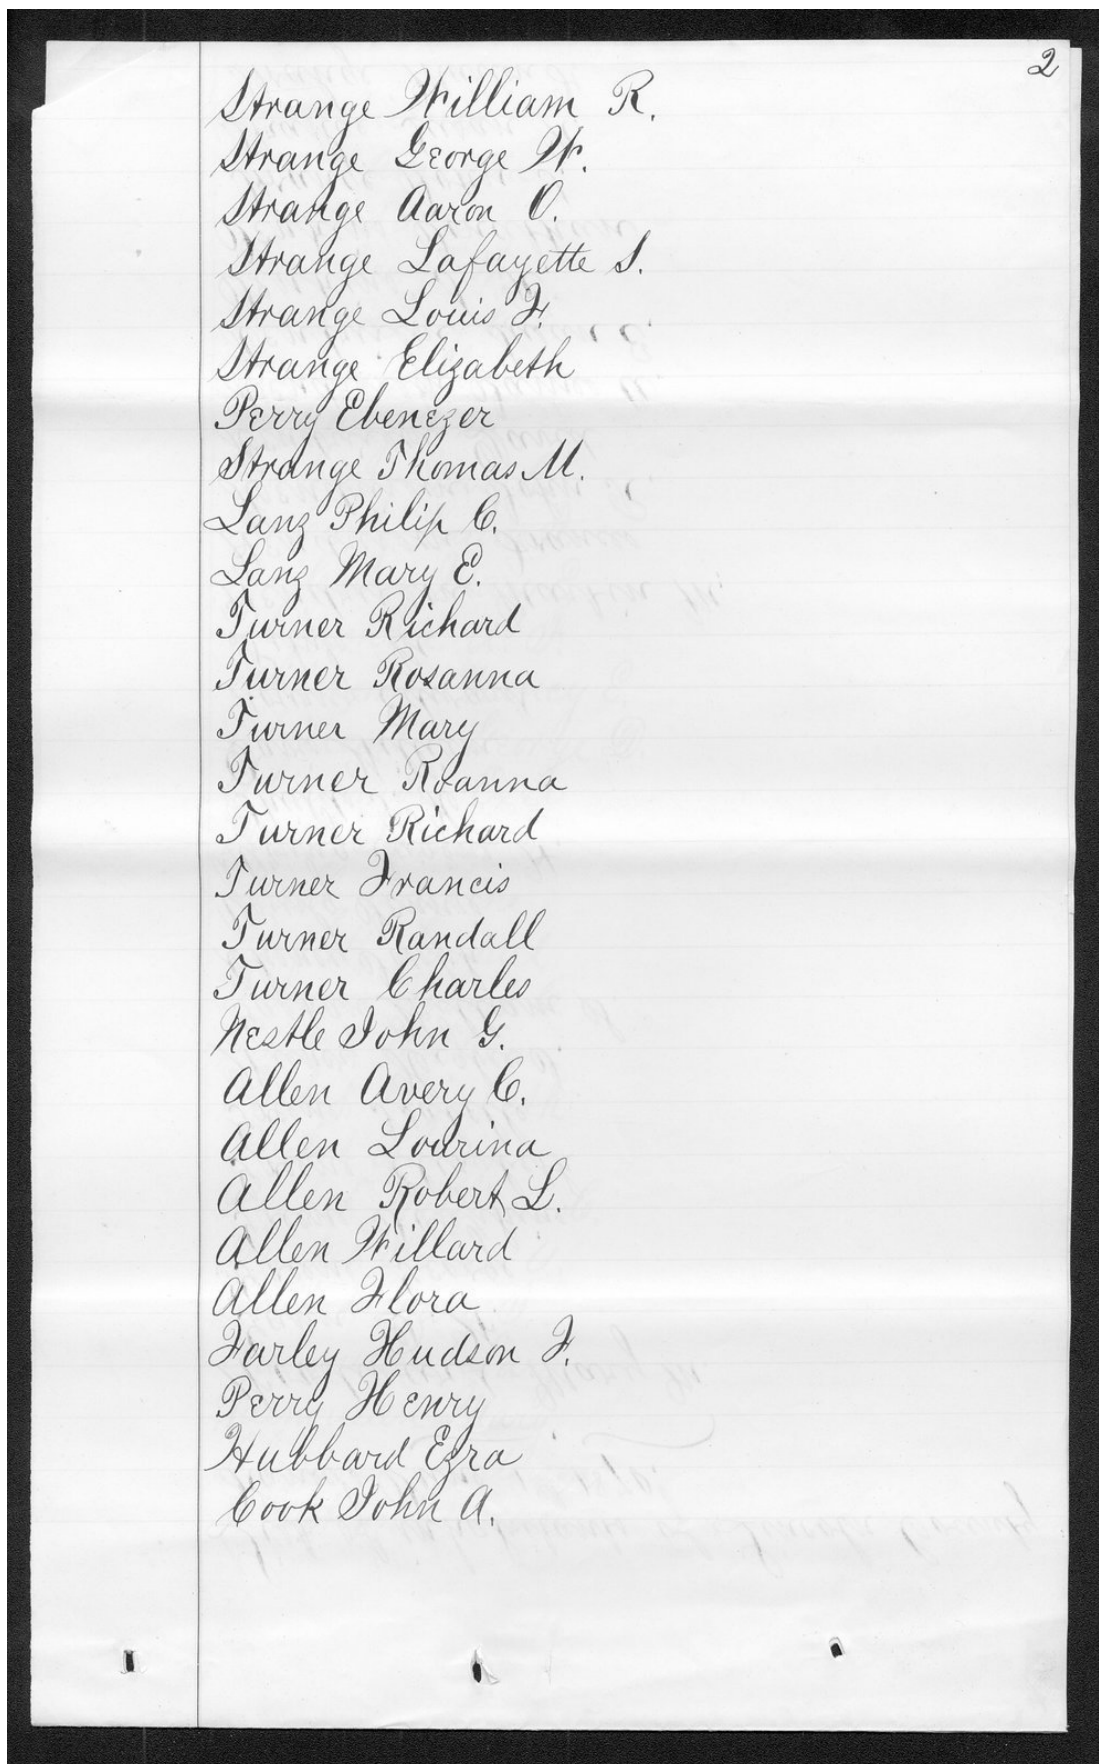 2
Strange William R.
Strange George W.
Strange Aaron O.
Strange Lafayette S.
Strange Louis F.
Strange Elizabeth
Perry Ebenezer
Strange Thomas M.
Lanz Philip C.
Lanz Mary E.
Turner Richard
Turner Rosanna
Turner Mary
Turner Roanna
Turner Richard
Turner Francis
Turner Randall
Turner Charles
Nestle John G.
Allen Avery C.
Allen Lourina
Allen Robert L.
Allen Willard
Allen Flora
Farley Hudson F.
Perry Henry
Hubbard Ezra
Cook John A.